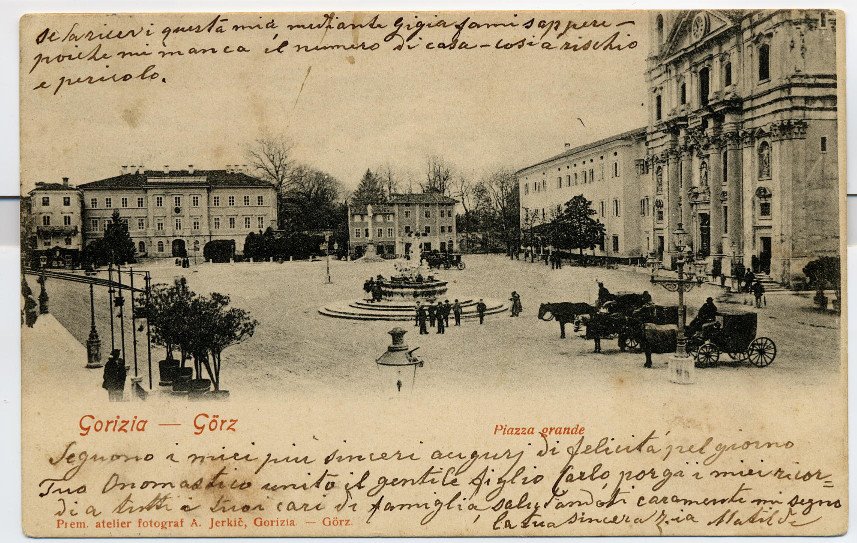 se la ricevi questa mia mediante Gigia fami sappere-
poiche mi manca il numero di casa - così a rischio
e pericolo.
Gorizia — Görz
Piazza grande
Seguono i miei più sinceri augurj di felicità pel giorno
Tuo Onomastico unito il gentile figlio Carlo, porgi i miei ricor=
di a tutti i tuoi cari di famiglia, salutandoti caramente mi segno
la tua sincera zia Matilde
Prem. atelier fotograf A. Jerkič, Gorizia — Görz.